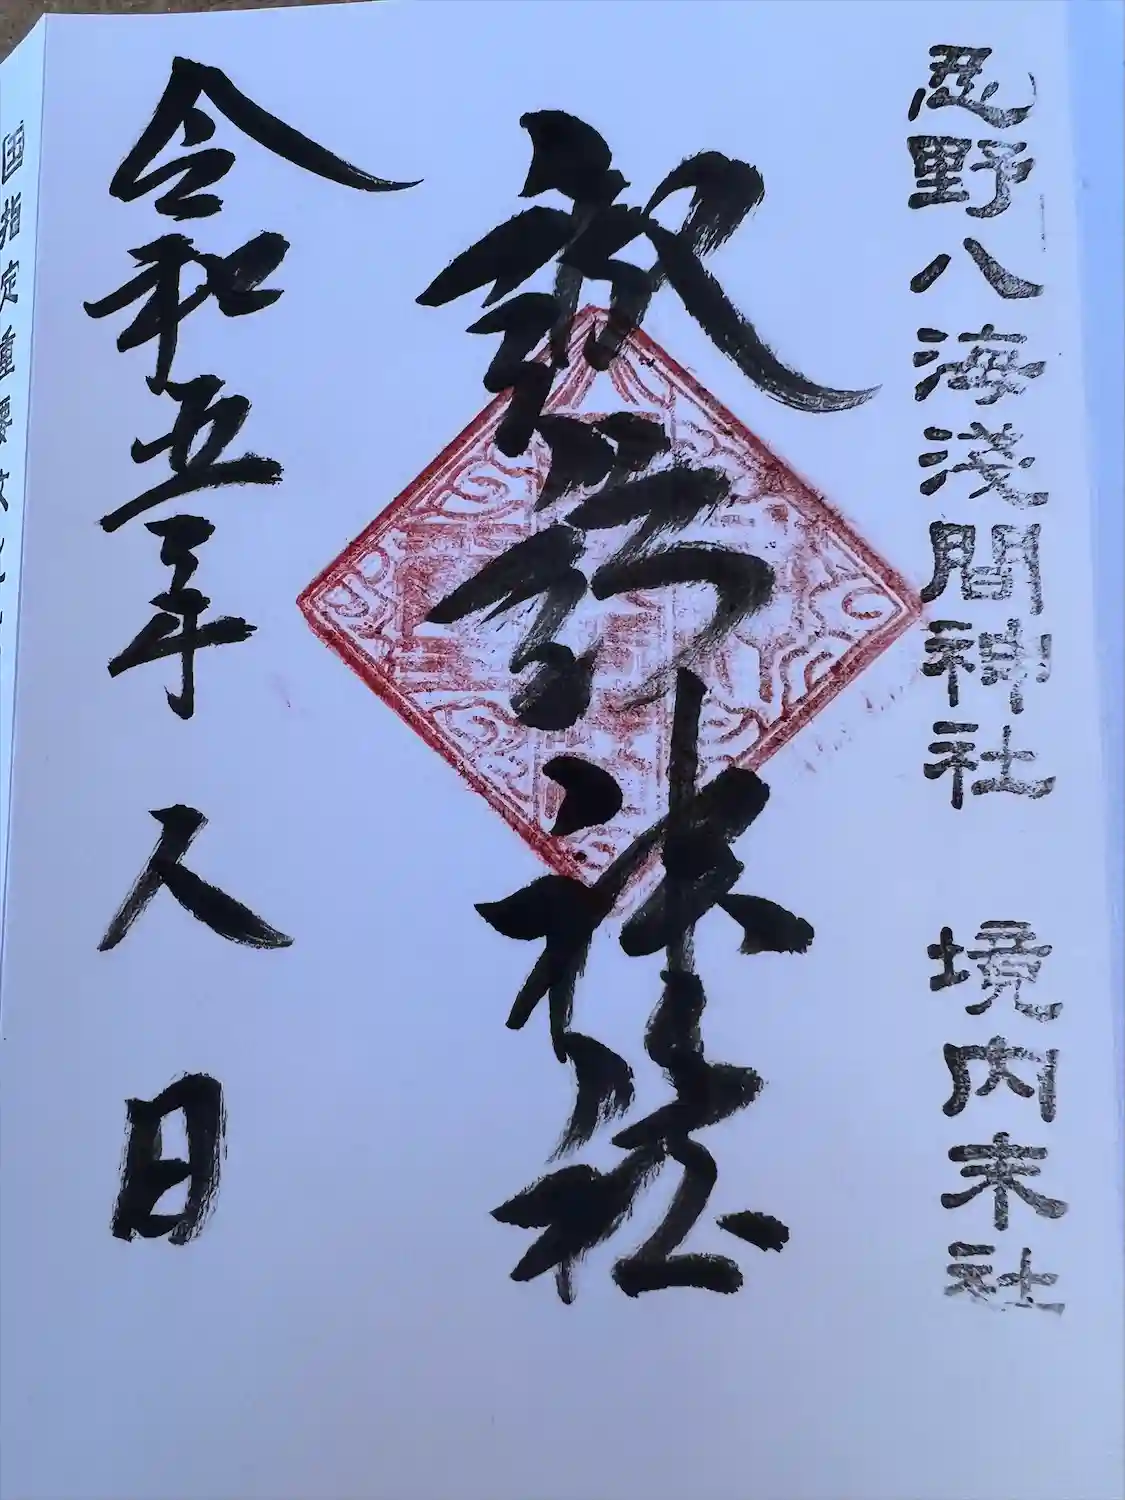 忍野八海淺間神社　境内末社
諏訪神社
令和五年　人日
国指定重要文